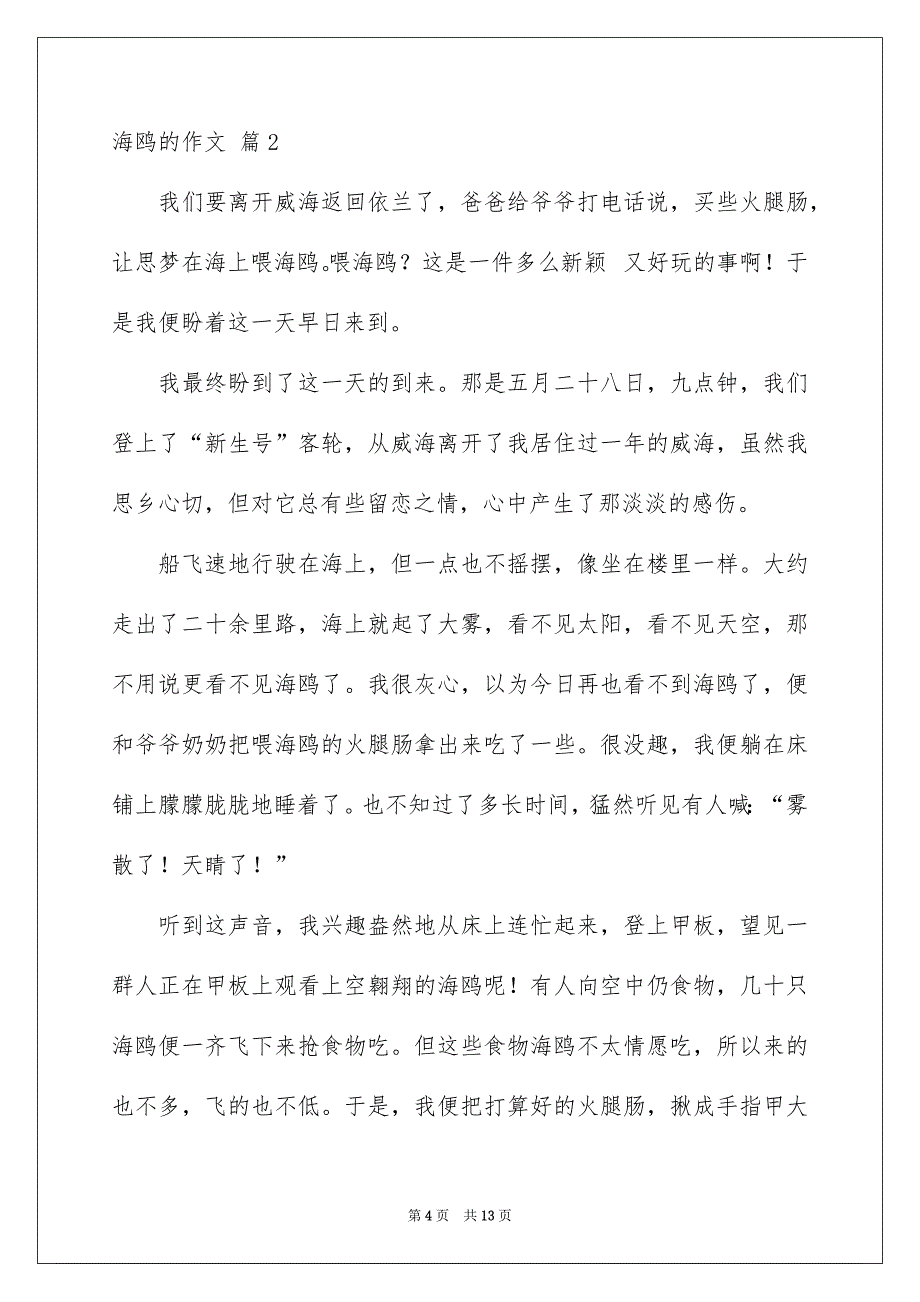 海鸥的作文 篇2
我们要离开威海返回依兰了，爸爸给爷爷打电话说，买些火腿肠，
让思梦在海上喂海鸥。喂海鸥？这是一件多么新颖 又好玩的事啊！于
是我便盼着这一天早日来到。
我最终盼到了这一天的到来。那是五月二十八日，九点钟，我们
登上了“新生号”客轮，从威海离开了我居住过一年的威海，虽然我
思乡心切，但对它总有些留恋之情，心中产生了那淡淡的感伤。
船飞速地行驶在海上，但一点也不摇摆，像坐在楼里一样。大约
走出了二十余里路，海上就起了大雾，看不见太阳，看不见天空，那
不用说更看不见海鸥了。我很灰心，以为今日再也看不到海鸥了，便
和爷爷奶奶把喂海鸥的火腿肠拿出来吃了一些。很没趣，我便躺在床
铺上朦朦胧胧地睡着了。也不知过了多长时间，猛然听见有人喊：“雾
散了！天晴了！”
听到这声音，我兴趣盎然地从床上连忙起来，登上甲板，望见一
群人正在甲板上观看上空翱翔的海鸥呢！有人向空中仍食物，几十只
海鸥便一齐飞下来抢食物吃。但这些食物海鸥不太情愿吃，所以来的
也不多，飞的也不低。于是，我便把打算好的火腿肠，揪成手指甲大
第 4 页 共 13 页